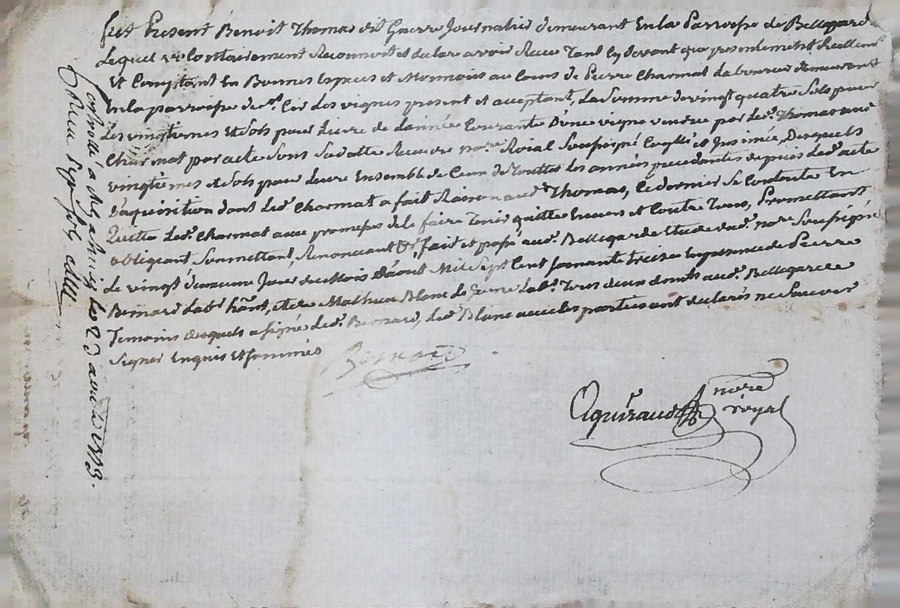 fut Présent Benoit Thomas dit Guerre Journalier demeurant En la Parroisse de Bellegarde
Lequel volontairement Reconnoit et declare avoir Receu Tant cydevant que presentement Reellemt
Et Comptant En Bonnes Especes et au cours de Pierre Charmat Laboureur demeurant
En la parroisse de St Cir Les vignes present et acceptant, La Somme de vingt quatre Sols pour
Les vingtiemes Et Sols pour Livre de L'année Courante D'une vigne vendue par led. Thomas aud.
Charmat par acte Sous Sa datte Receu Royal Soussigné et Insinué, Desquels
vingtiemes et Sols pour Livre Ensemble de Ceux de Touttes Les années precedantes depuis Led. acte
D'aquisition dont Led. Charmat a fait Raison aud. Thomas, Ce dernier Se Contente En
Quitte Led. Charmat avec promesse de le faire Tenir quitte Envers et Contre Tous, Promettant
obligeant, Soumettant, Renonçant &c, fait et passé aud. Bellegarde Etude dud. nore Soussigné
Le vingt Jour du Mois D'aoust Mil Sept Cent Soixante Treize En presence de Pierre
Bernard Lab. et de Mathieu Blanc Le Jeune Lab. Tous deux demts aud. Bellegarde
Temoins Desquels a Signé Led. Bernard, Led. Blanc avec les parties ont declarés ne Scavoir
Signer Enquis Et Sommés
Bernard
nore
royal
Controllé a le 23 aout 1773.
Receu Sept Sols